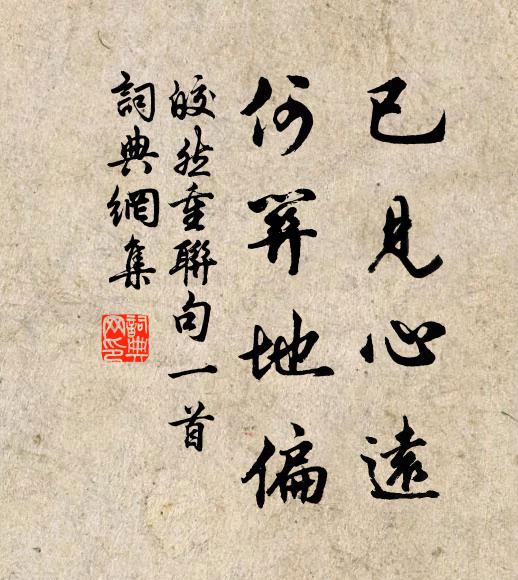 已見心遠
何筭地偏
皎然重聯句一首
詞典網集
詞典
网印